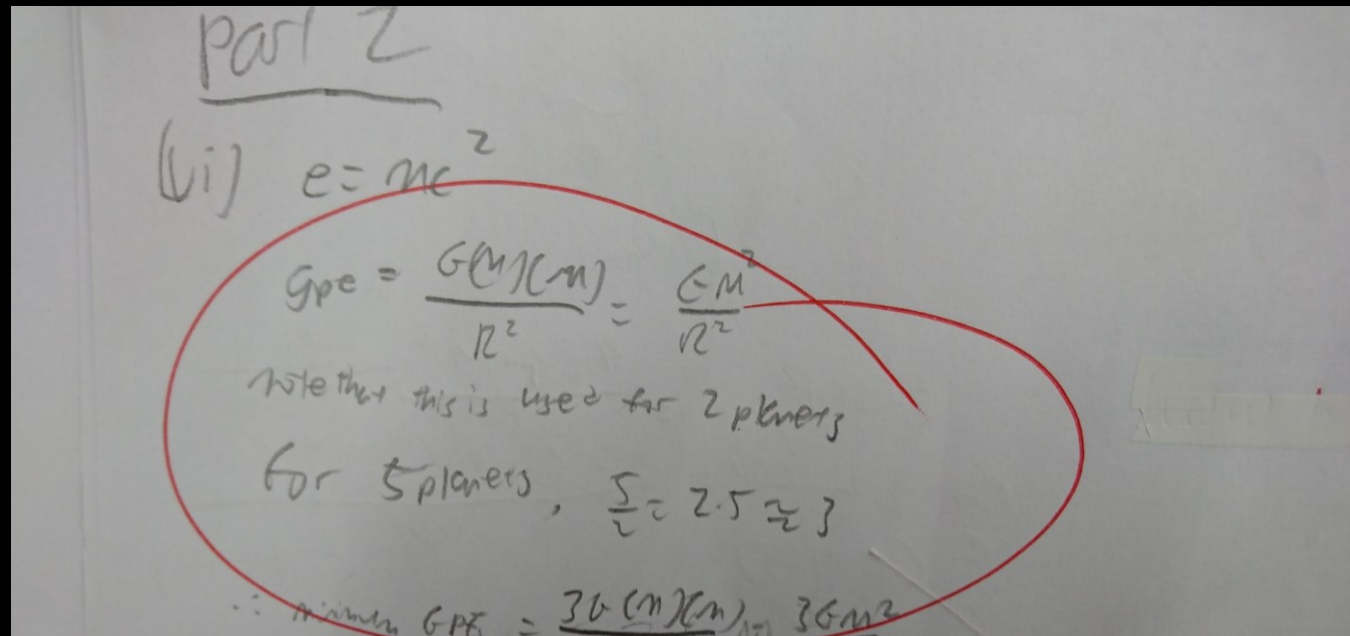 part 2
(vi) e = mc²
Gpe = G(M)(m) / R² = GM² / R²
note that this is used for 2 planets
for 5 planets, 5/2 = 2.5 ≈ 3
∴ GPE = 3G(m)(m) = 3GM²